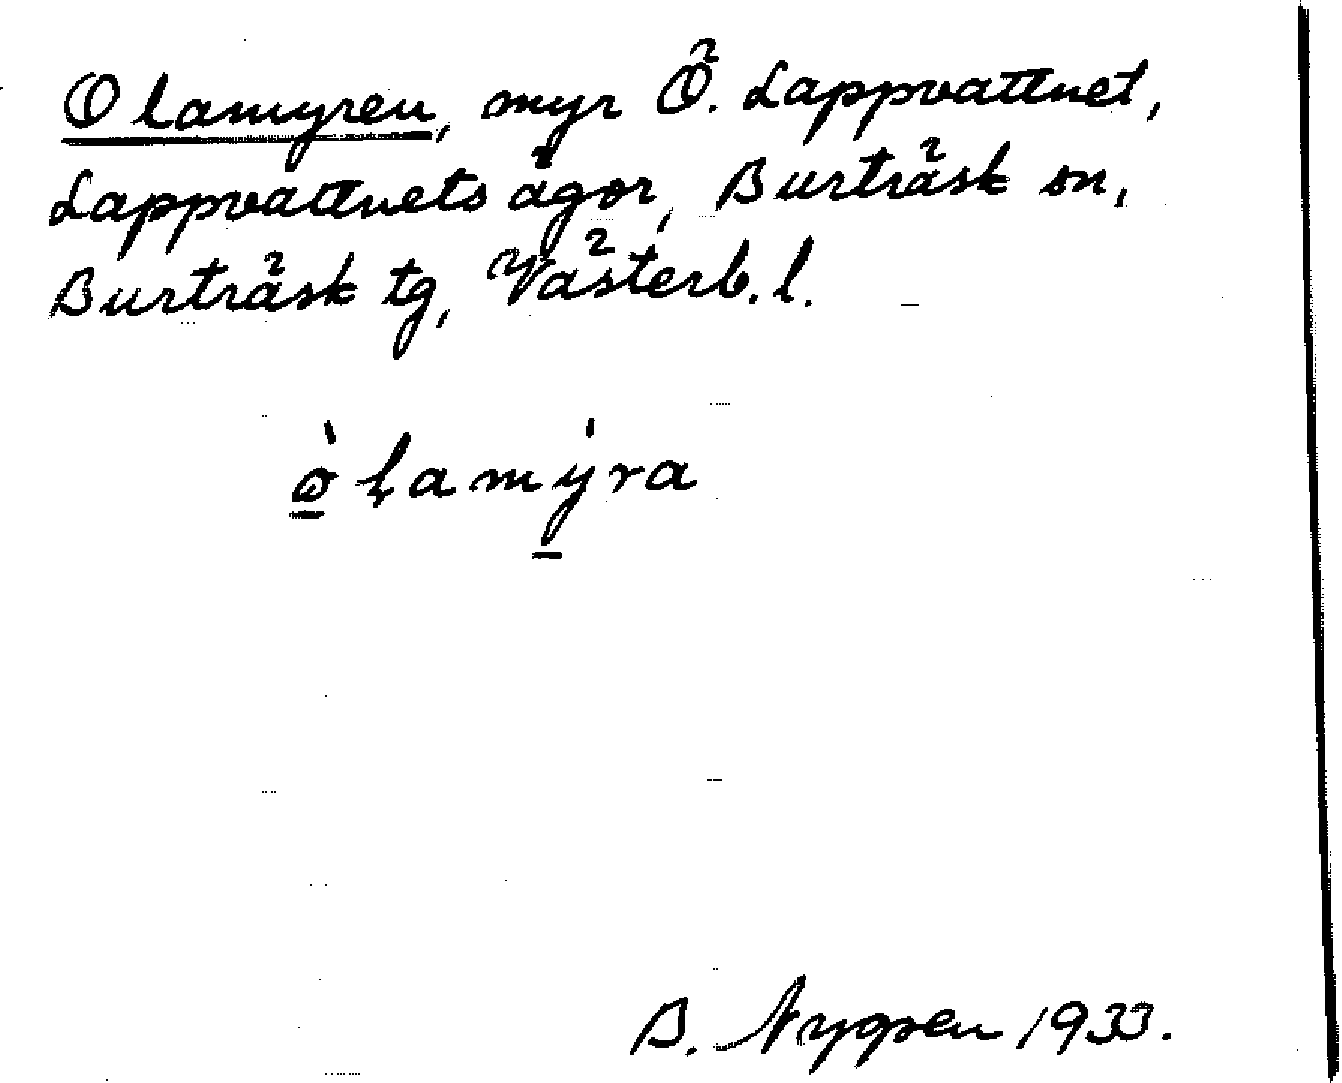 Olamyren, myr Ö. Lappvattnet,
Lappvattnets ägor, Burträsk sn,
Burträsk tg, Västerb. l.
òlamýra
B. Nygren 1933.